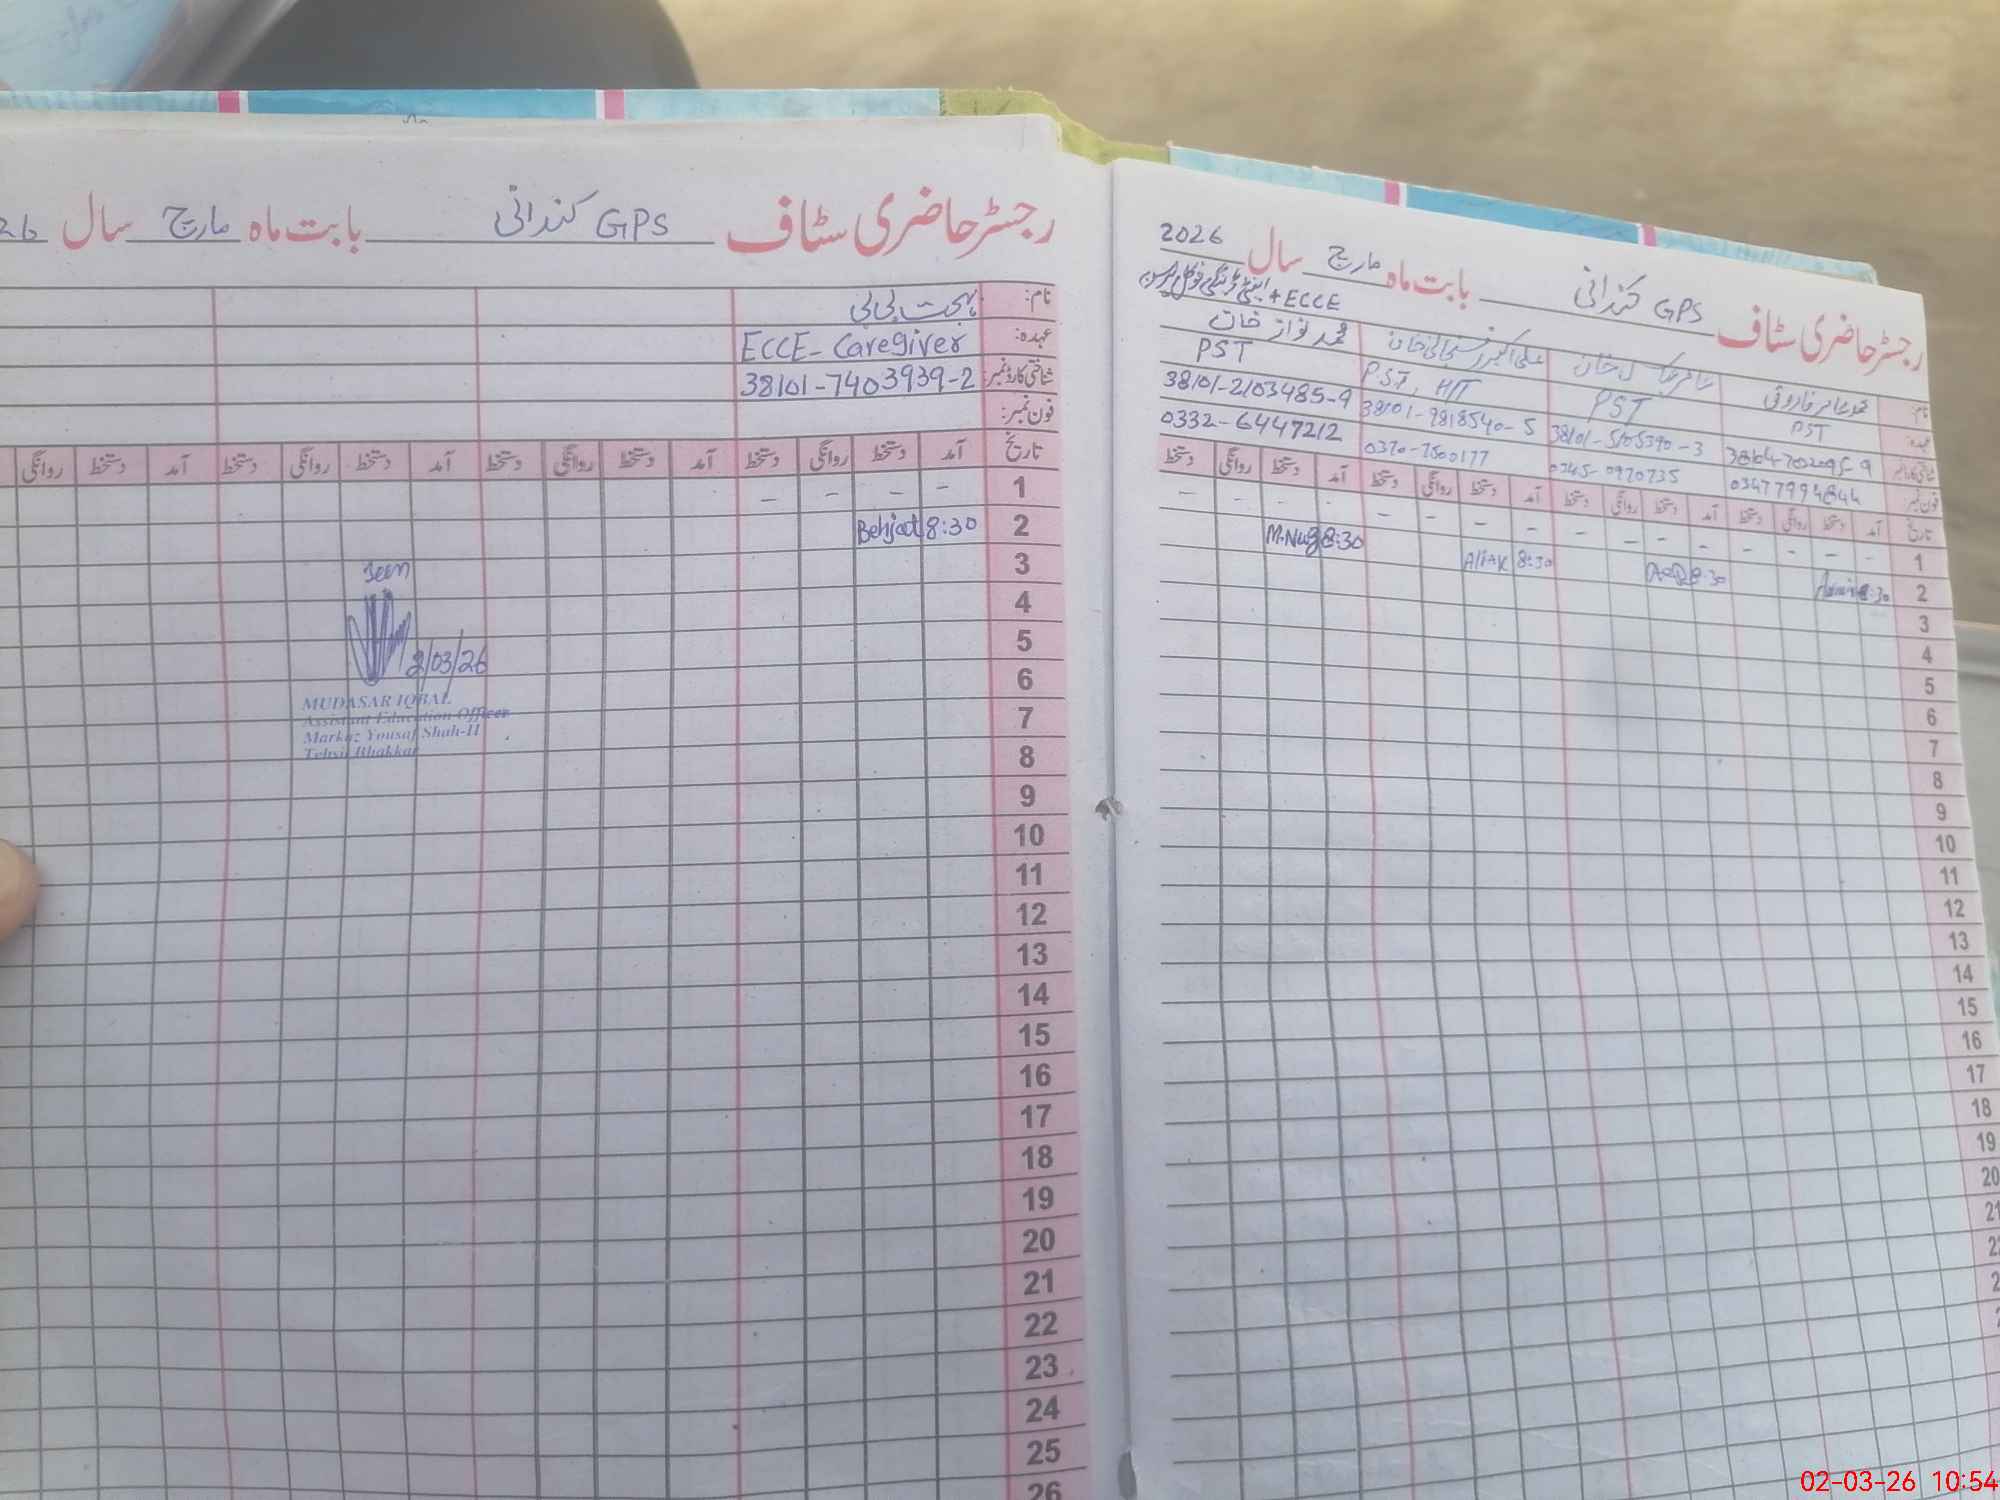 رجسٹر حاضری سٹاف GPS کندانی بابت ماہ مارچ سال 26
نام: بہجت بی بی
عہدہ: ECCE - Caregiver
شناختی کارڈ نمبر: 38101-7403939-2
فون نمبر:
تاریخ آمد دستخط روانگی دستخط آمد دستخط روانگی دستخط آمد دستخط روانگی دستخط آمد دستخط روانگی
1 - - - -
2 8:30 Behjat
3
Seen
4
5
2/03/26
6
MUDASAR IQBAL
7
Assistant Education Officer
Markaz Yousaf Shah-II
8
Tehsil Bhakkar
9
10
11
12
13
14
15
16
17
18
19
20
21
22
23
24
25
26
رجسٹر حاضری سٹاف GPS کندانی بابت ماہ مارچ سال 2026
+ ECCE
نام: محمد عامر فاروقی علی اکبر خان محمد نواز خان
عہدہ: PST PST PST, H/T PST
38101-5105390-3 38101-9818540-5 38101-2103485-9
فون نمبر 03477994844 0345-0970735 0370-7500177 0332-6447212
تاریخ آمد دستخط روانگی دستخط آمد دستخط روانگی دستخط آمد دستخط روانگی دستخط آمد دستخط روانگی دستخط
1 - - - - - - - - - - - - - - - -
2 8:30 8:30 8:30 8:30
3
4
5
6
7
8
9
10
11
12
13
14
15
16
17
18
19
20
02-03-26 10:54